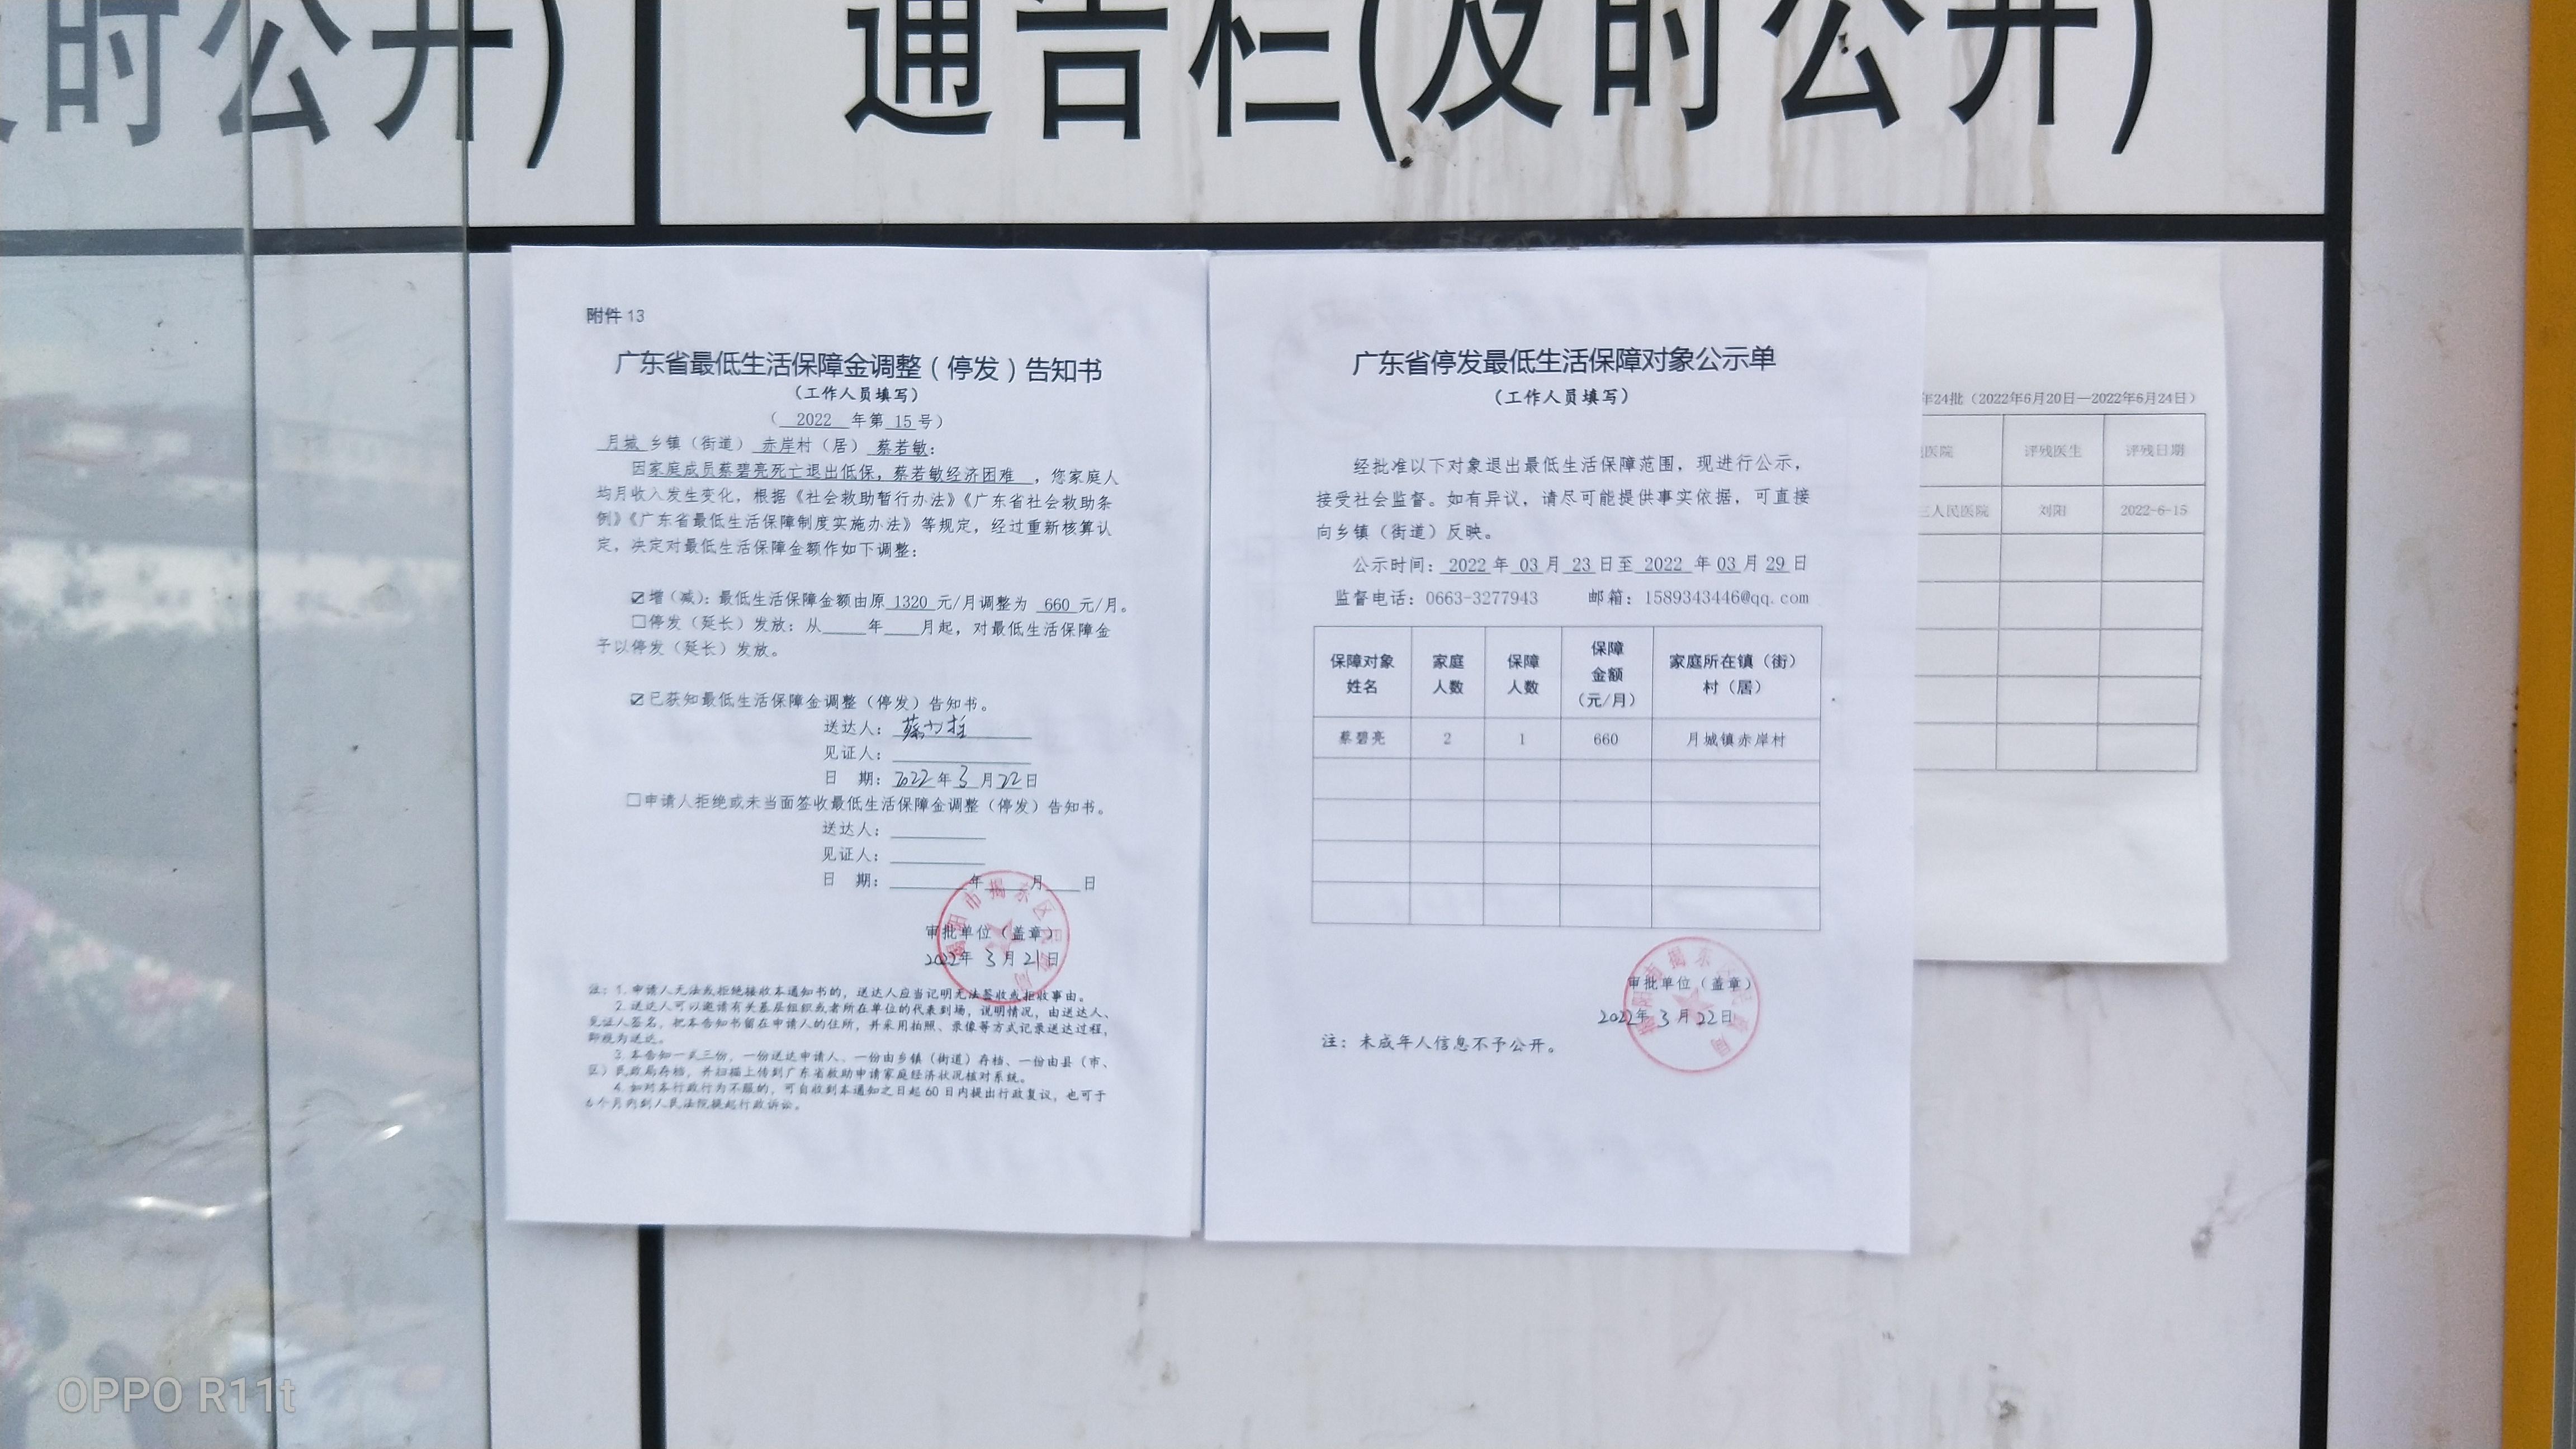 时公开)
通告栏(及时公开)
附件 13
广东省最低生活保障金调整（停发）告知书
（工作人员填写）
（ 2022 年第 15 号）
月城 乡镇（街道） 赤岸村（居） 蔡若敏：
因家庭成员蔡碧亮死亡退出低保，蔡若敏经济困难 ，您家庭人
均月收入发生变化，根据《社会救助暂行办法》《广东省社会救助条
例》《广东省最低生活保障制度实施办法》等规定，经过重新核算认
定，决定对最低生活保障金额作如下调整：
☑增（减）：最低生活保障金额由原 1320 元/月调整为 660 元/月。
□停发（延长）发放：从____年____月起，对最低生活保障金
予以停发（延长）发放。
☑已获知最低生活保障金调整（停发）告知书。
送达人：
见证人：
日 期：2022年3月22日
□申请人拒绝或未当面签收最低生活保障金调整（停发）告知书。
送达人：
见证人：
日 期：____年____月____日
审批单位（盖章）
2022年 3月21日
注：1.申请人无法或拒绝接收本通知书的，送达人应当记明无法签收或拒收事由。
2.送达人可以邀请有关基层组织或者所在单位的代表到场，说明情况，由送达人、
见证人签名，把本告知书留在申请人的住所，并采用拍照、录像等方式记录送达过程，
即视为送达。
3.本告知一式三份，一份送达申请人、一份由乡镇（街道）存档、一份由县（市、
区）民政局存档，并扫描上传到广东省救助申请家庭经济状况核对系统。
4.如对本行政行为不服的，可自收到本通知之日起60日内提出行政复议，也可于
6个月内到人民法院提起行政诉讼。
广东省停发最低生活保障对象公示单
（工作人员填写）
经批准以下对象退出最低生活保障范围，现进行公示，
接受社会监督。如有异议，请尽可能提供事实依据，可直接
向乡镇（街道）反映。
公示时间： 2022 年 03 月 23 日至 2022 年 03 月 29 日
监督电话：0663-3277943 邮箱：1589343446@qq.com
保障对象姓名 家庭人数 保障人数 保障金额（元/月） 家庭所在镇（街）村（居）
蔡碧亮 2 1 660 月城镇赤岸村
审批单位（盖章）
2022年 3月22日
注：未成年人信息不予公开。
年24批（2022年6月20日—2022年6月24日）
医院 评残医生 评残日期
三人民医院 刘阳 2022-6-15
OPPO R11t